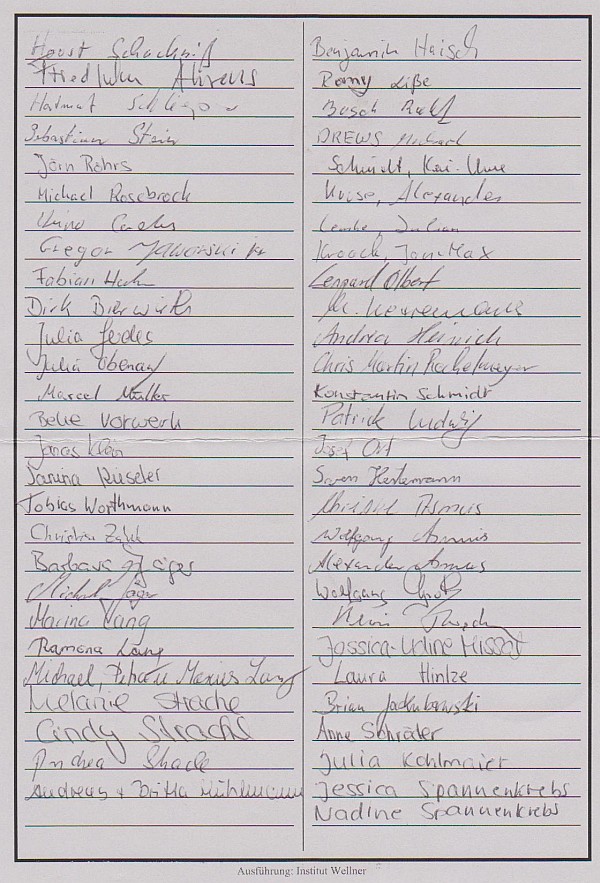 Horst
Friedhelm Ahrens
Hartmut
Sebastian Stein
Jörn Röhrs
Michael Rosebrock
Gregor Jaworski
Fabian
Dirk Bierwirth
Julia
Julia Obenauf
Marcel Müller
Beke Vorwerk
Jonas Klein
Janina Rüseler
Tobias Worthmann
Christian
Barbara Jäger
Michael Jäger
Marina Lang
Ramona Lang
Michael, Petra u Marius Lang
Melanie Strache
Cindy Strache
Andrea
Andreas + Britta Mühlmann
Benjamin Haisch
Romy Liße
Busch Ralf
DREWS Michael
Schmidt, Kai-Uwe
Kruse, Alexander
Lemke, Julian
Kroock, Jan-Max
Lennard Olbert
M.
Andrea Heinich
Chris Martin
Konstantin Schmidt
Patrick Ludwig
Josef Ort
Soven
Asmus
Wolfgang Asmus
Alexander Asmus
Wolfgang
Jessica-Nadine
Laura Hintze
Brian Jackubowski
Anne Schröder
Julia Kohlmaier
Jessica Spannenkrebs
Nadine Spannenkrebs
Ausführung: Institut Wellner